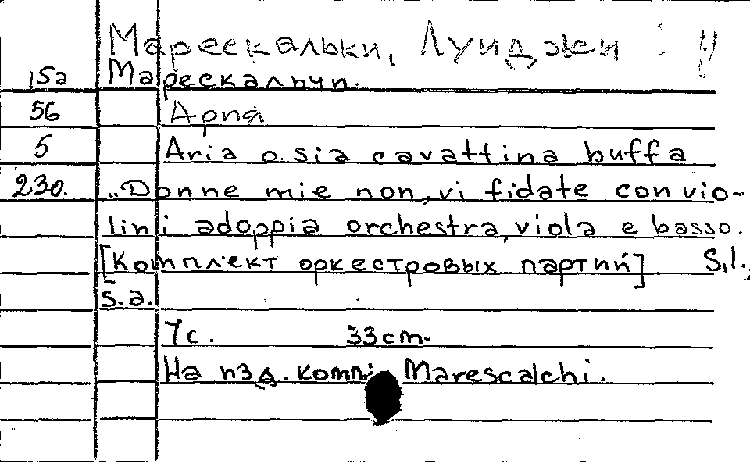 Марескальки, Луиджи
15а Марескальчи.
56 Ария
5 Aria o.sia cavattina buffa
230. „Donne mie non, vi fidate con vio-
lini adoppia orchestra, viola e basso.
[Комплект оркестровых партий] S.l.,
s.a.
7с. 33cm.
На изд. комп.: Marescalchi.